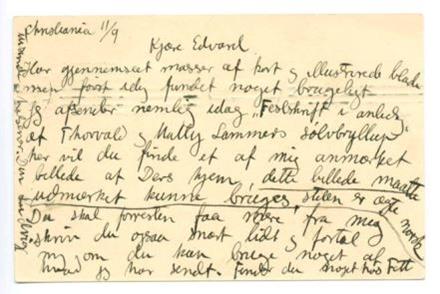 Christiania 11/9
Kjære Edvard.
Har gjennemseet masser af kort og illustrerede blade
men først idag fundet noget brugeligt
Jeg afsender nemlig idag "Festskrift i anledn
af Thorvald og Mally Lammers Sølvbryllup"
her vil du finde et af mig anmærket
billede af Ders hjem, dette billede maatte
udmærket kunne bruges, stilen er ægte norsk
Du skal forresten faa mere fra mig
skriv du ogsaa snart lidt og fortæl
mig om du kan bruge noget af
hvad jeg har sendt. Finder du noget hos